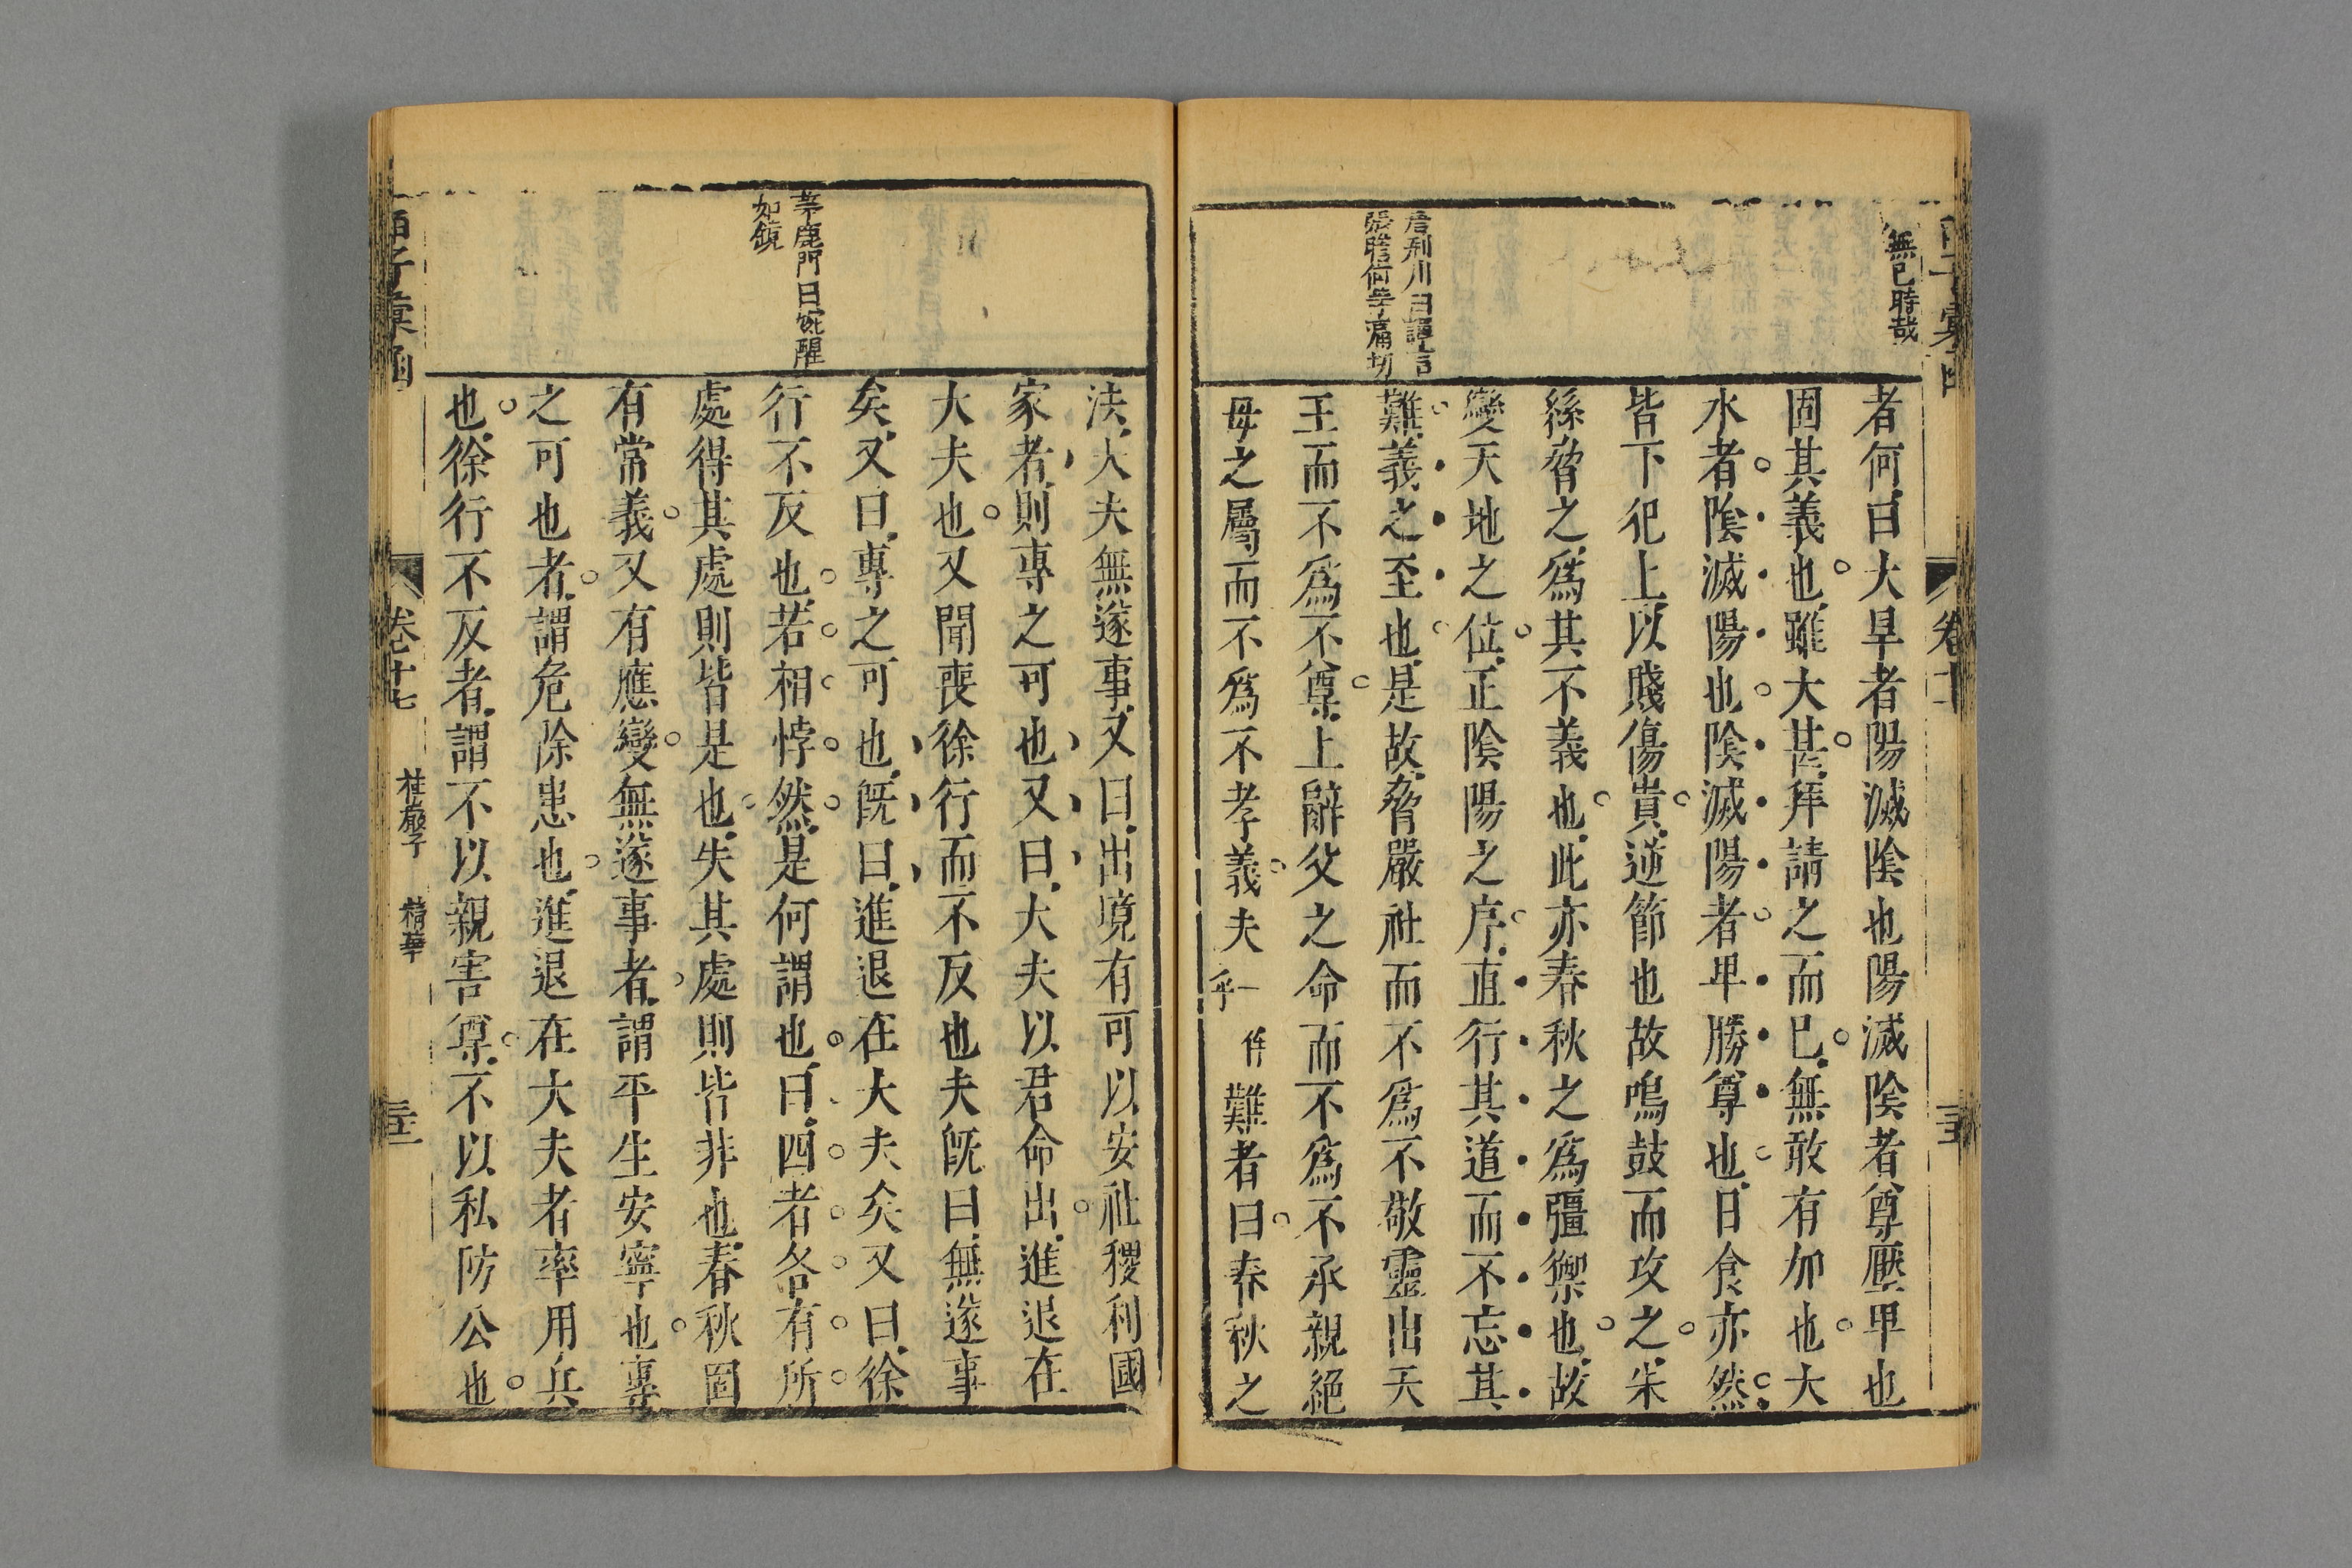 無已時哉
唐荊川曰讜言
張膽何等痛切
者何曰大旱者陽滅陰也陽滅陰者尊壓卑也
固其義也雖大甚拜請之而已無敢有加也大
水者陰滅陽也陰滅陽者卑勝尊也日食亦然
皆下犯上以賤傷貴逆節也故鳴鼓而攻之朱
絲脅之為其不義也此亦春秋之為彊禦也故
變天地之位正陰陽之序直行其道而不忘其
難義之至也是故脅嚴社而不為不敬靈出天
王而不為不尊上辭父之命而不為不承親絕
母之屬而不為不孝義夫一作乎難者曰春秋之
茅鹿門曰𠕅醒
如鏡
法大夫無遂事又曰出境有可以安社稷利國
家者則專之可也又曰大夫以君命出進退在
大夫也又聞喪徐行而不反也夫既曰無遂事
矣又曰專之可也既曰進退在大夫矣又曰徐
行不反也若相悖然是何謂也曰四者各有所
處得其處則皆是也失其處則皆非也春秋固
有常義又有應變無遂事者謂平生安寧也專
之可也者謂危除患也進退在大夫者率用兵
也徐行不反者謂不以親害尊不以私防公也
卷十七
桂巖子
精華